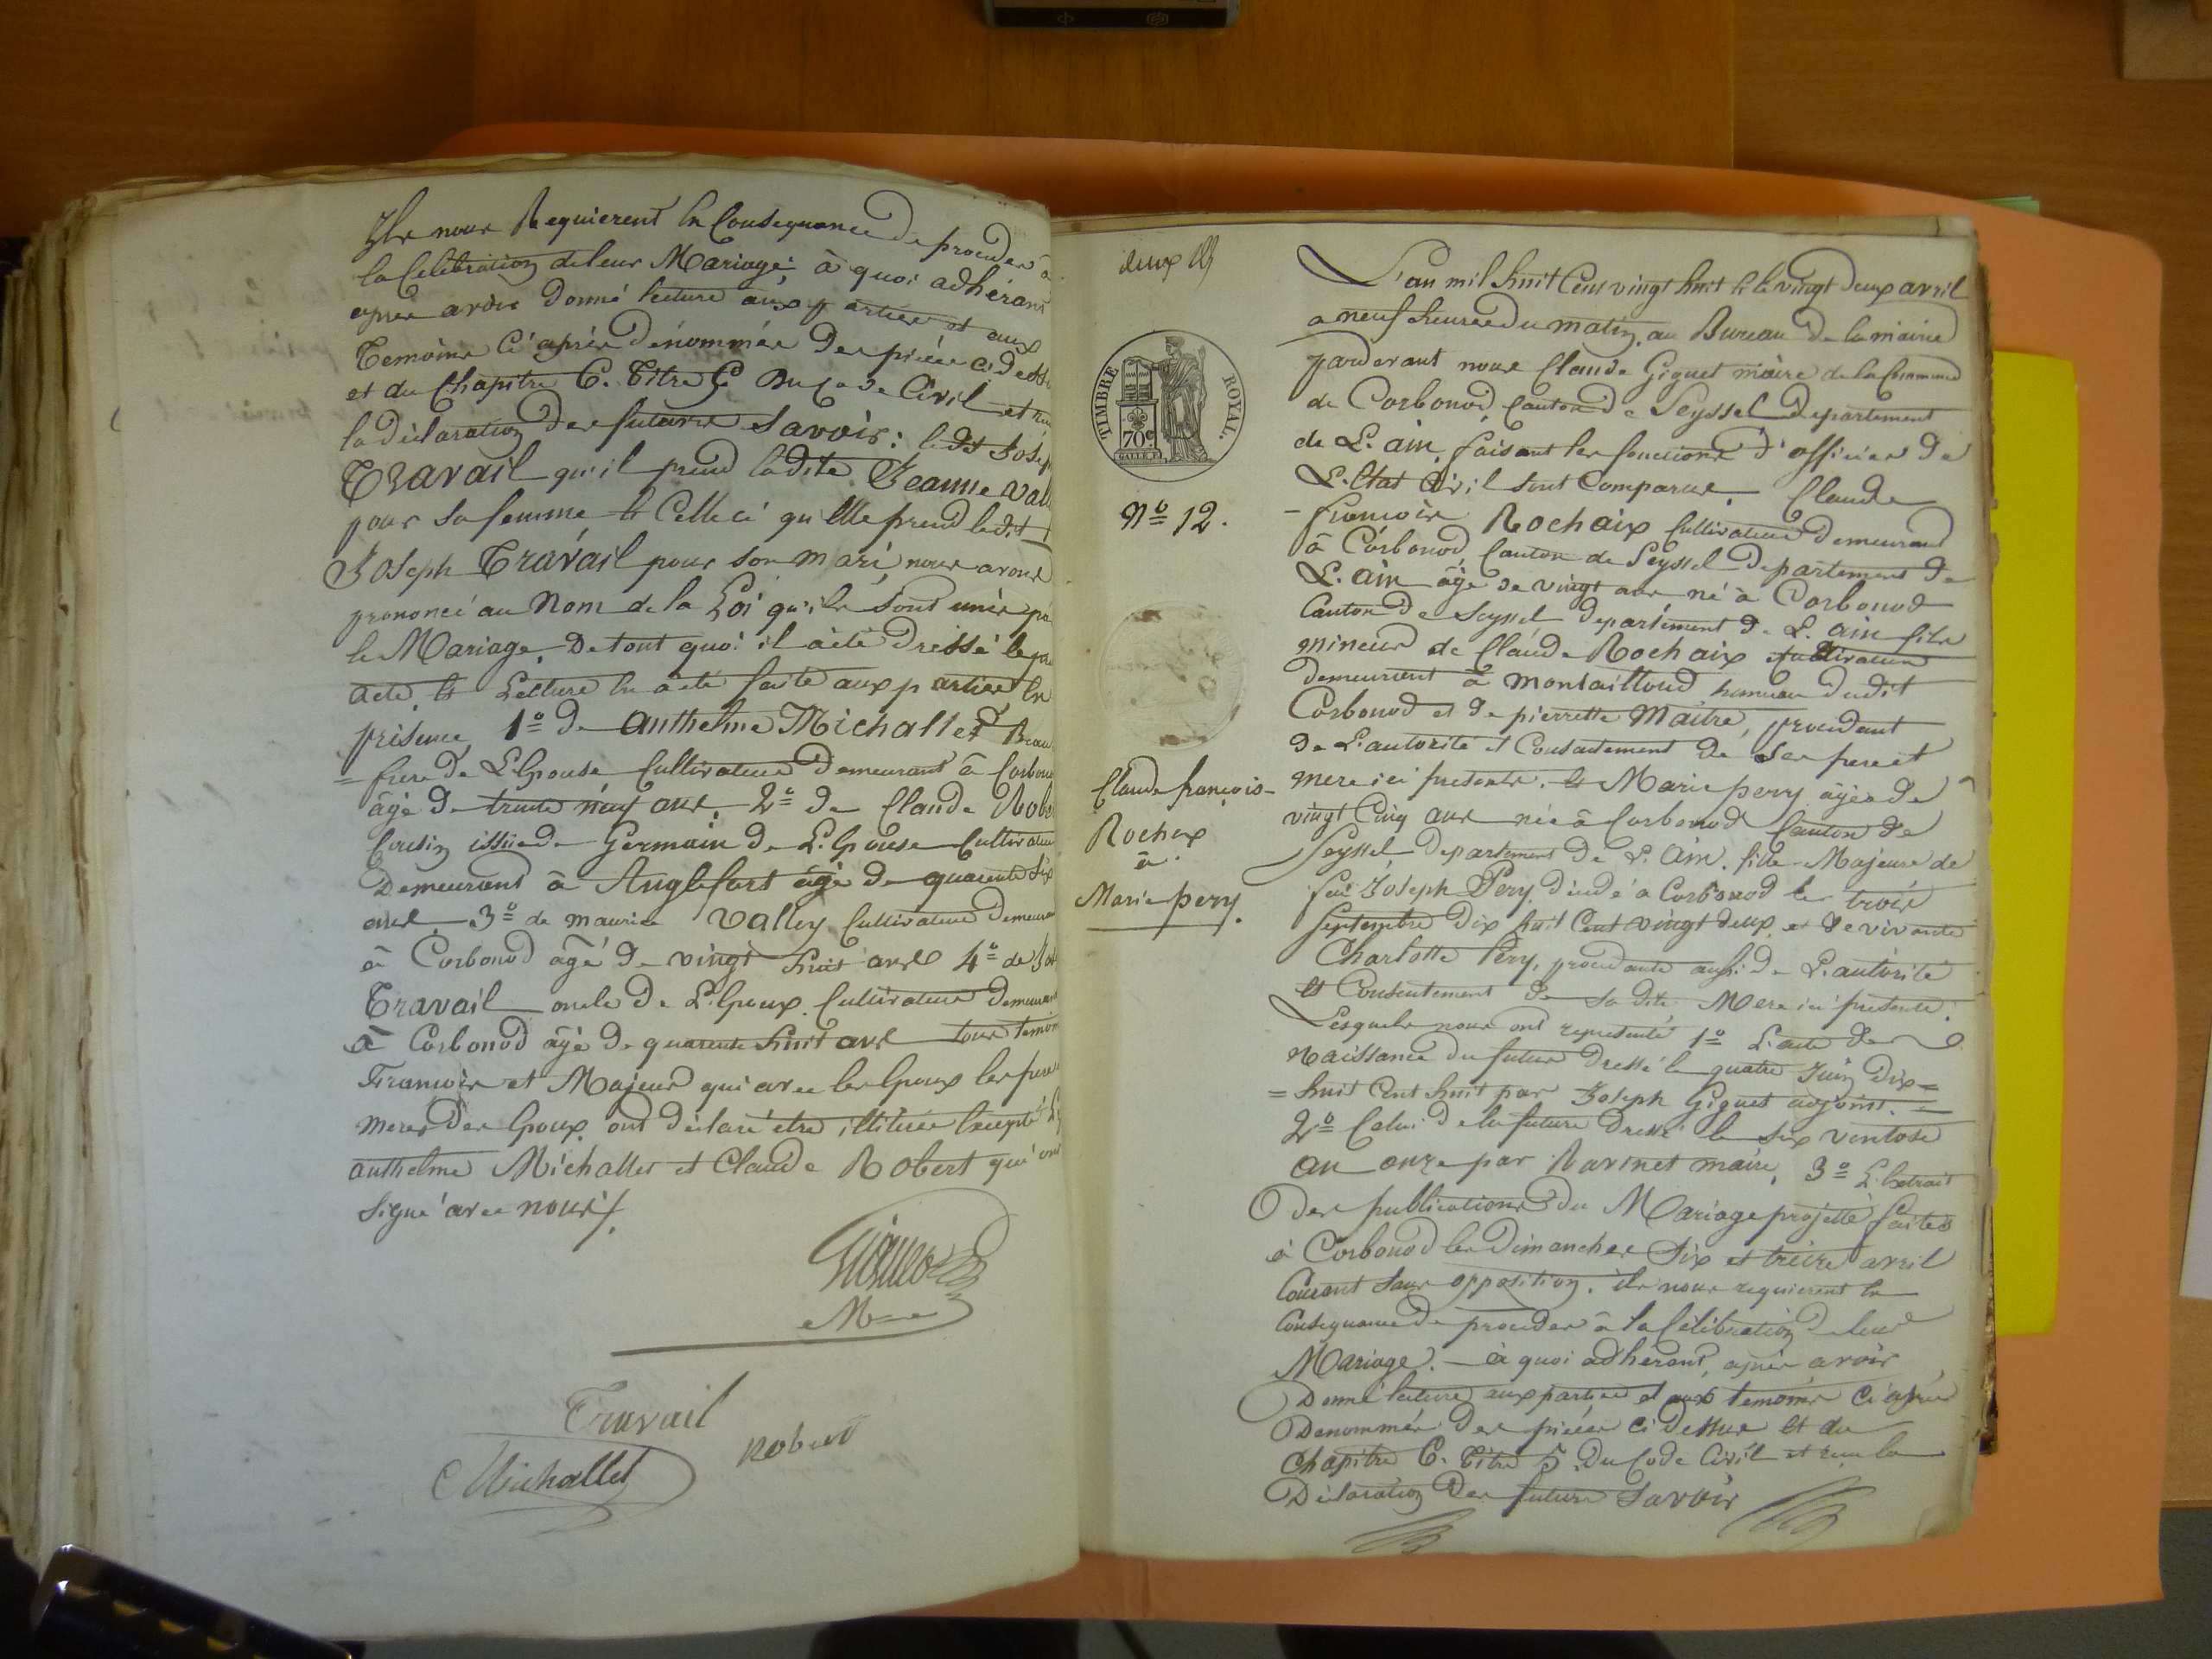 Ils nous Requierent En Consequance de proceder à
la Celebration de leur Mariage; à quoi adhérant
après avoir donné lecture aux parties et aux
Temoins Ci après dénommés des pièces ci dessus
et du Chapitre 6. Titre 5 Du Code Civil et
la déclaration des futurs Savoir: ledit Joseph
Travail qu'il prend ladite Jeanne
pour sa femme Et Celle ci qu'Elle prend ledit
Joseph Travail pour son mari, nous avons
prononcé au Nom de la Loi qu'ils sont unis par
le Mariage, De tout quoi il a été dressé le
acte, Et Lecture En a été faite aux parties En
présence 1º de Anthelme Michallet Beau
= frere de L'Epouse Cultivateur demeurant à Corbonod
âgé de trente neuf ans, 2º de Claude Robert
Cousin issu de Germain de L'Epouse Cultivateur
Demeurant à Anglefort âgé de quarante six
ans 3º de maurice Valley Cultivateur demeurant
à Corbonod âgé de vingt huit ans 4º de
Travail oncle de L'Epoux Cultivateur demeurant
à Corbonod âgé de quarante huit ans tous temoins
Francois et Majeurs qui avec les Epoux les peres
meres des Epoux ont déclaré être illitérés Excepté
anthelme Michallet et Claude Robert qui ont
signé avec nous/.
Giguet
M=e
Travail
Michallet
Robert
deux
TIMBRE ROYAL.
70c
Nº 12.
Claude françois
Rochaix
à
Marie pery.
L'an mil huit Cent vingt huit Et le vingt deux avril
a neuf heures du matin, au Bureau de la mairie
pardevant nous Claude Giguet maire de la Commune
de Corbonod, Canton de Seyssel Departement
de L'ain, faisant les fonctions d'officier de
L'Etat Civil sont Comparus. Claude
- francois Rochaix Cultivateur demeurant
à Corbonod, Canton de Seyssel departement de
L'ain âgé de vingt ans né à Corbonod
Canton de Seyssel departement de L'ain fils
mineur de Claude Rochaix Cultivateur
demeurant à montaillond hameau dudit
Corbonod et de pierrette Maitre, procedant
de L'autorité et Consantement de ses pere et
mere ici presents. Et Marie pery âgée de
vingt Cinq ans née à Corbonod Canton de
Seyssel departement de L'Ain. fille Majeure de
feu Joseph Pery décédé a Corbonod le trois
Septembre dix huit Cent vingt deux, et de vivante
Charlotte Pery, procedante aussi de L'autorité
Et Consentement de sa dite Mere ici presente.
Lesquels nous ont representé 1º L'acte de
naissance du futur dressé le quatre Juin dix=
= huit Cent huit par Joseph Giguet adjoint. =
2º Celui de la future dressé le six ventose
an onze par Ravinet maire, 3º L'Extrait
des publications du Mariage projetté faites
à Corbonod les dimanches Six et treize avril
Courant sans opposition. ils nous requierent En
Consequance de proceder à la Celebration de leur
Mariage. - à quoi adhérant, après avoir
Donné lecture aux parties et aux temoins Ci après
Denommés des pieces ci dessus Et du
Chapitre 6. Titre 5. Du Code Civil et reçu la
Déclaration des futurs Savoir